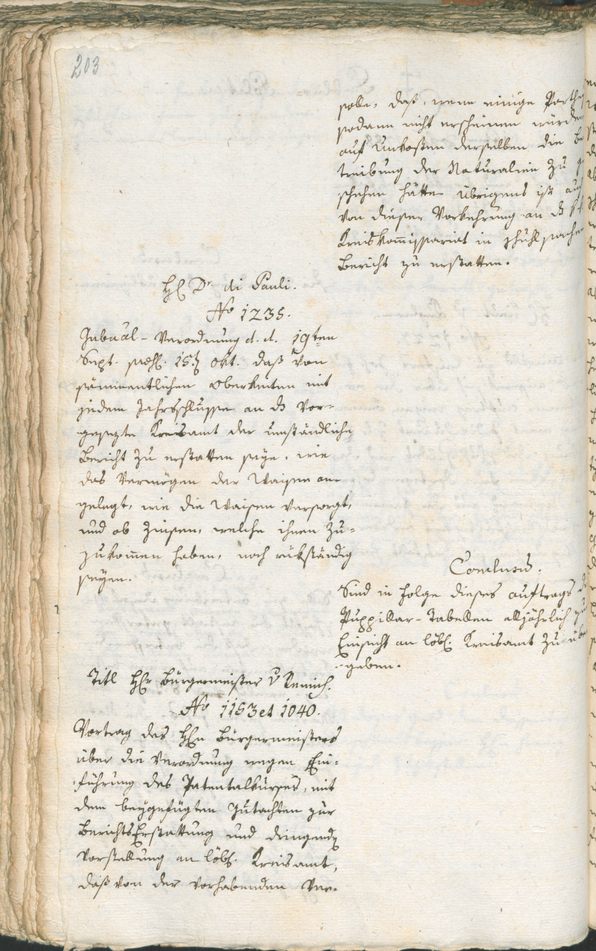 203
solle, daß, wenn einige Parth
sodann nicht erscheinen würden
auf Unkosten derselben die B
treibung der Naturalien zu g
schehen hätte. Übrigens ist auch
von dieser Vorkehrung an das
Kreiskommissariat in
Bericht zu erstatten.
H. Dr. di Pauli.
No 1235.
Gubnal-Verordnung d. d. 19ten
Sept. 15. Okt. daß von
sämmentlichen Oberkeiten mit
jedem Jahrsschlusse an das vor-
gesezte Kreisamt der umständliche
Bericht zu erstatten seye, wie
das Vermögen der Waisen an-
gelegt, wie die Waisen versorgt,
und ob Zinsen, welche ihnen zu-
zukommen haben, noch rükständig
seyen.
Conclusum.
Sind in Folge dieses Auftrags d
Puppillar-Tabellen alljährlich zu
Einsicht an löbl. Kreisamt zu über
-geben.
Titl Herr Bürgermeister v Remich.
No 1153 et 1040.
Vortrag des Herrn Bürgermeisters
über die Verordnung wegen Ein-
führung des Patentalkurses, mit
dem beygefügten Gutachten zur
Berichts Erstattung und dringende
Vorstellung an löbl. Kreisamt,
daß von der vorhabenden Ver-